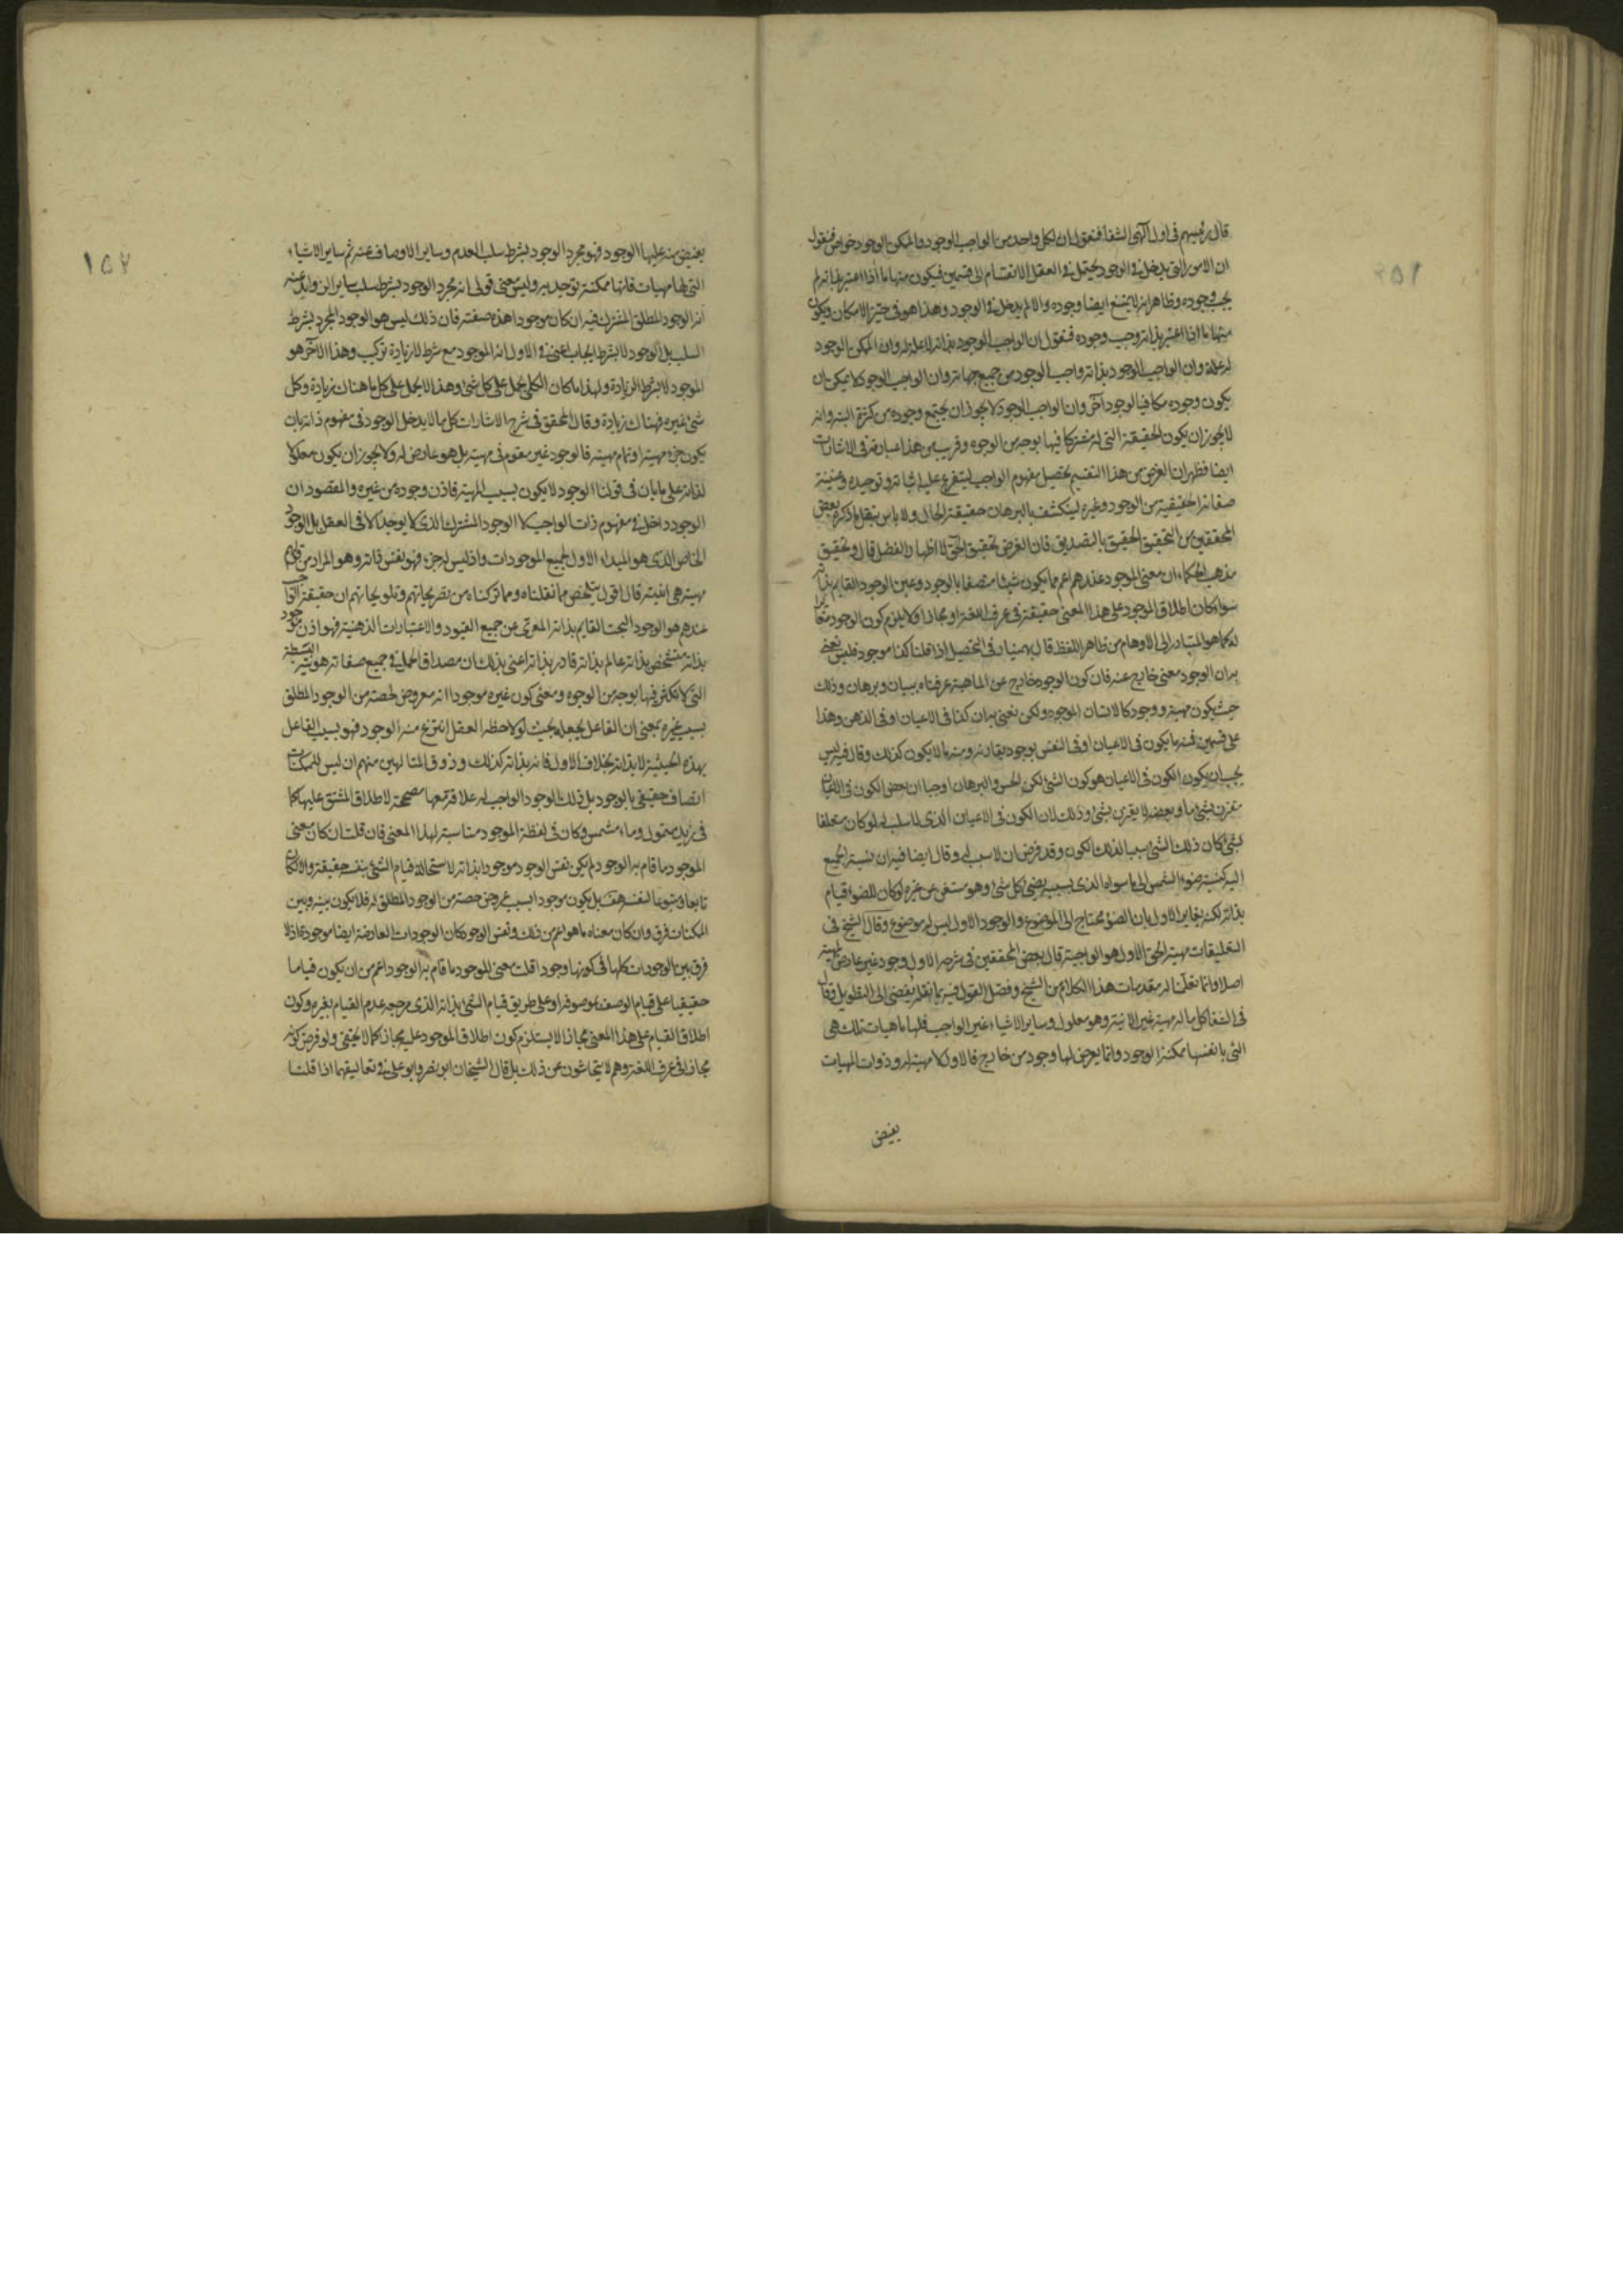 قال رئيسهم فى اول الهى الشفا فنقول ان لكل واحد من الواجب الوجود والممكن الوجود خواص فنقول
ان الامور التى يدخل فى الوجود يحتمل فى العقل الانقسام الى قسمين فيكون منها ما اذا اعتبر بذاته لم
يجب وجوده وظاهر انه لا يمتنع ايضا وجوده والا لم يدخل فى الوجود وهذا هو فى حيز الامكان ويكون
منها ما اذا اعتبر بذاته وجب وجوده فنقول ان الواجب الوجود بذاته لا علة له وان الممكن الوجود
له علة وان الواجب الوجود بذاته واجب الوجود من جميع جهاته وان الواجب الوجود لا يمكن ان
يكون وجوده مكافيا لوجود آخر وان الواجب الوجود لا يجوز ان يجتمع وجوده من كثرة البتة وانه
لا يجوز ان يكون الحقيقة التى له مشتركا فيها بوجه من الوجوه وقريب من هذا عبارته فى الاشارات
ايضا فظهر ان الغرض من هذا التقسيم تحصيل مفهوم الواجب ليتفرع عليه اثباته وتوحيده وعينية
صفاته الحقيقية من الوجود وغيره لينكشف بالبرهان حقيقة الحال ولا باس بنقل ما ذكره بعض
المحققين من التحقيق الحقيق بالتصديق فان الغرض تحقيق الحق لا اظهار الفضل قال وتحقيق
مذهب الحكماء ان معنى الموجود عندهم اعم مما يكون شيئا متصفا بالوجود وعين الوجود القايم بذاته
سواء كان اطلاق الموجود على هذا المعنى حقيقة فى عرف اللغة او مجازا ولا يلزم كون الوجود
له كما هو المتبادر الى الاوهام من ظاهر اللفظ قال بهمنيار فى التحصيل اذا قلنا كذا موجود فليس نعنى
به ان الوجود معنى خارج عنه فان كون الوجود خارج عن الماهية عرفناه ببيان وبرهان وذلك
حيث يكون مهية ووجود كالانسان الموجود ولكن نعنى به ان كذا فى الاعيان او فى الذهن وهذا
على قسمين فمنه ما يكون فى الاعيان او فى النفس بوجود يقارنه ومنه ما لا يكون كذلك وقال فيه ليس
يجب ان يكون الكون فى الاعيان هو كون الشئ لكن الحس والبرهان اوجبا ان بعض الكون فى الاعيان
مقترن بشئ ما وبعضه لا يقترن بشئ وذلك لان الكون فى الاعيان الذى لا سبب له لو كان متعلقا
بشئ كان ذلك الشئ سببا لذلك الكون وقد فرض ان لا سبب له وقال ايضا فيه ان نسبة الجميع
اليه كنسبة ضوء الشمس الى ما سواه الذى بسببه يضئ كل شئ وهو مستغن عن غيره لو كان للضوء قيام
بذاته لكنه يغاير الاول بان الضوء محتاج الى الموضوع والوجود الاول ليس له موضوع وقال الشيخ فى
التعليقات مهية الحق الاول هو الواجبية قال بعض المحققين فى شرحه الاول وجود غير عارض لمهية
اصلا وانما نقلنا له مقدمات هذا الكلام من الشيخ وفصل القول فيه بما نقله يفضى الى التطويل وقال
فى الشفا كل ما له مهية غير الانية وهو معلول وساير الاشياء غير الواجب فلها ماهيات تلك هى
التى بانفسها ممكنة الوجود وانما يعرض لها وجود من خارج فالاول لا مهية له وذوات المهيات
يفيض
١٥٢
يفيض منه عليها الوجود فهو مجرد الوجود بشرط سلب العدم وساير الاوصاف عنه ثم ساير الاشياء
التى لها مهيات فانها ممكنة توجد به وليس معنى قولى انه مجرد الوجود بشرط سلب ساير الزوايد عنه
انه الوجود المطلق المشترك فيه ان كان موجودا هذه صفته فان ذلك ليس هو الوجود المجرد بشرط
السلب بل الوجود لا بشرط الايجاب اعنى فى الاول انه الموجود مع شرط لا زيادة تركيب وهذا الآخر هو
الموجود لا بشرط الزيادة ولهذا ما كان الكلى يحمل على كل شئ وهذا لا يحمل على كل ما هناك زيادة وكل
شئ غيره فهناك زيادة وقال المحقق فى شرح الاشارات كل ما لا يدخل الوجود فى مفهوم ذاته بان
يكون جزء مهيته او تمام مهيته فالوجود غير مقوم فى مهيته بل هو عارض له ولا يجوز ان يكون معلولا
لذاته على ما بان فى قولنا الوجود لا يكون بسبب المهية فاذن وجوده من غيره والمقصود ان
الوجود داخل فى مفهوم ذات الواجب لا الوجود المشترك الذى لا يوجد الا فى العقل بل الوجود
الخاص الذى هو المبداء الاول لجميع الموجودات واذ ليس له جزء فهو نفس ذاته وهو المراد من قولهم
مهيته هى انيته قال اقول يتلخص مما نقلناه ومما تركناه من تصريحاتهم وتلويحاتهم ان حقيقة الواجب
عندهم هو الوجود البحت القايم بذاته المعرى عن جميع القيود والاعتبارات الذهنية فهو اذن موجود
بذاته متشخص بذاته عالم بذاته قادر بذاته اعنى بذلك ان مصداق الحمل فى جميع صفاته هويته البسيطة
التى لا تكثر فيها بوجه من الوجوه ومعنى كون غيره موجودا انه معروض لحصة من الوجود المطلق
بسبب غيره بمعنى ان الفاعل يجعله بحيث لو لاحظه العقل انتزع منه الوجود فهو بسبب الفاعل
بهذه الحيثية لا بذاته بخلاف الاول فانه بذاته كذلك وذوق المتالهين منهم ان ليس للممكنات
اتصاف حقيقى بالوجود بل ذلك الوجود الواجب له علاقة معها مصححة لاطلاق المشتق عليها كما
فى زيد متمول وماء مشمس وكان فى لفظة الموجود مناسبة لهذا المعنى فان قلت ان كان معنى
الموجود ما قام به الوجود لم يكن نفس الوجود موجودا بذاته لاستحالة قيام الشئ بنفسه حقيقة والا لكان
تابعا ومتبوعا لنفسه هف بل يكون موجودا بسبب عروض حصة من الوجود المطلق له فلا يكون بينه وبين
الممكنات فرق وان كان معناه ما هو اعم من ذلك ونفس الوجود كان الوجودات العارضة ايضا موجودة اذ لا
فرق بين الوجودات كلها فى كونها وجودا قلت معنى الموجود ما قام به الوجود اعم من ان يكون قياما
حقيقيا على قيام الوصف بموصوفه او على طريق قيام الشئ بذاته الذى مرجعه عدم القيام بغيره وكون
اطلاق القيام على هذا المعنى مجازا لا يستلزم كون اطلاق الموجود عليه مجازا كما لا يخفى ولو فرض كونه
مجازا فى عرف اللغة وهم لا يتحاشون عن ذلك بل قال الشيخان ابو نصر وابو على فى تعاليقهما اذا قلنا